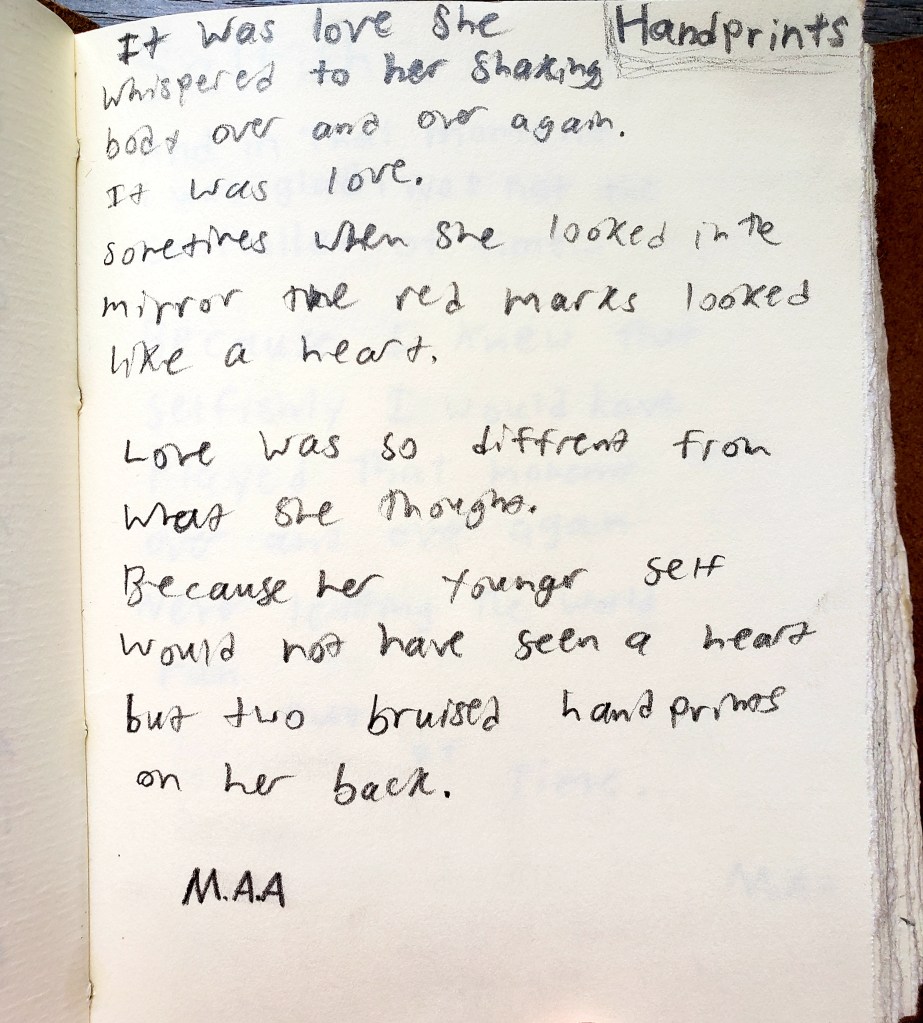 Handprints
It was love she
whispered to her shaking
body over and over again.
It was love.
sometimes when she looked in the
mirror the red marks looked
like a heart.
Love was so diffrent from
what she thought.
Because her younger self
would not have seen a heart
but two bruised handprints
on her back.
M.A.A